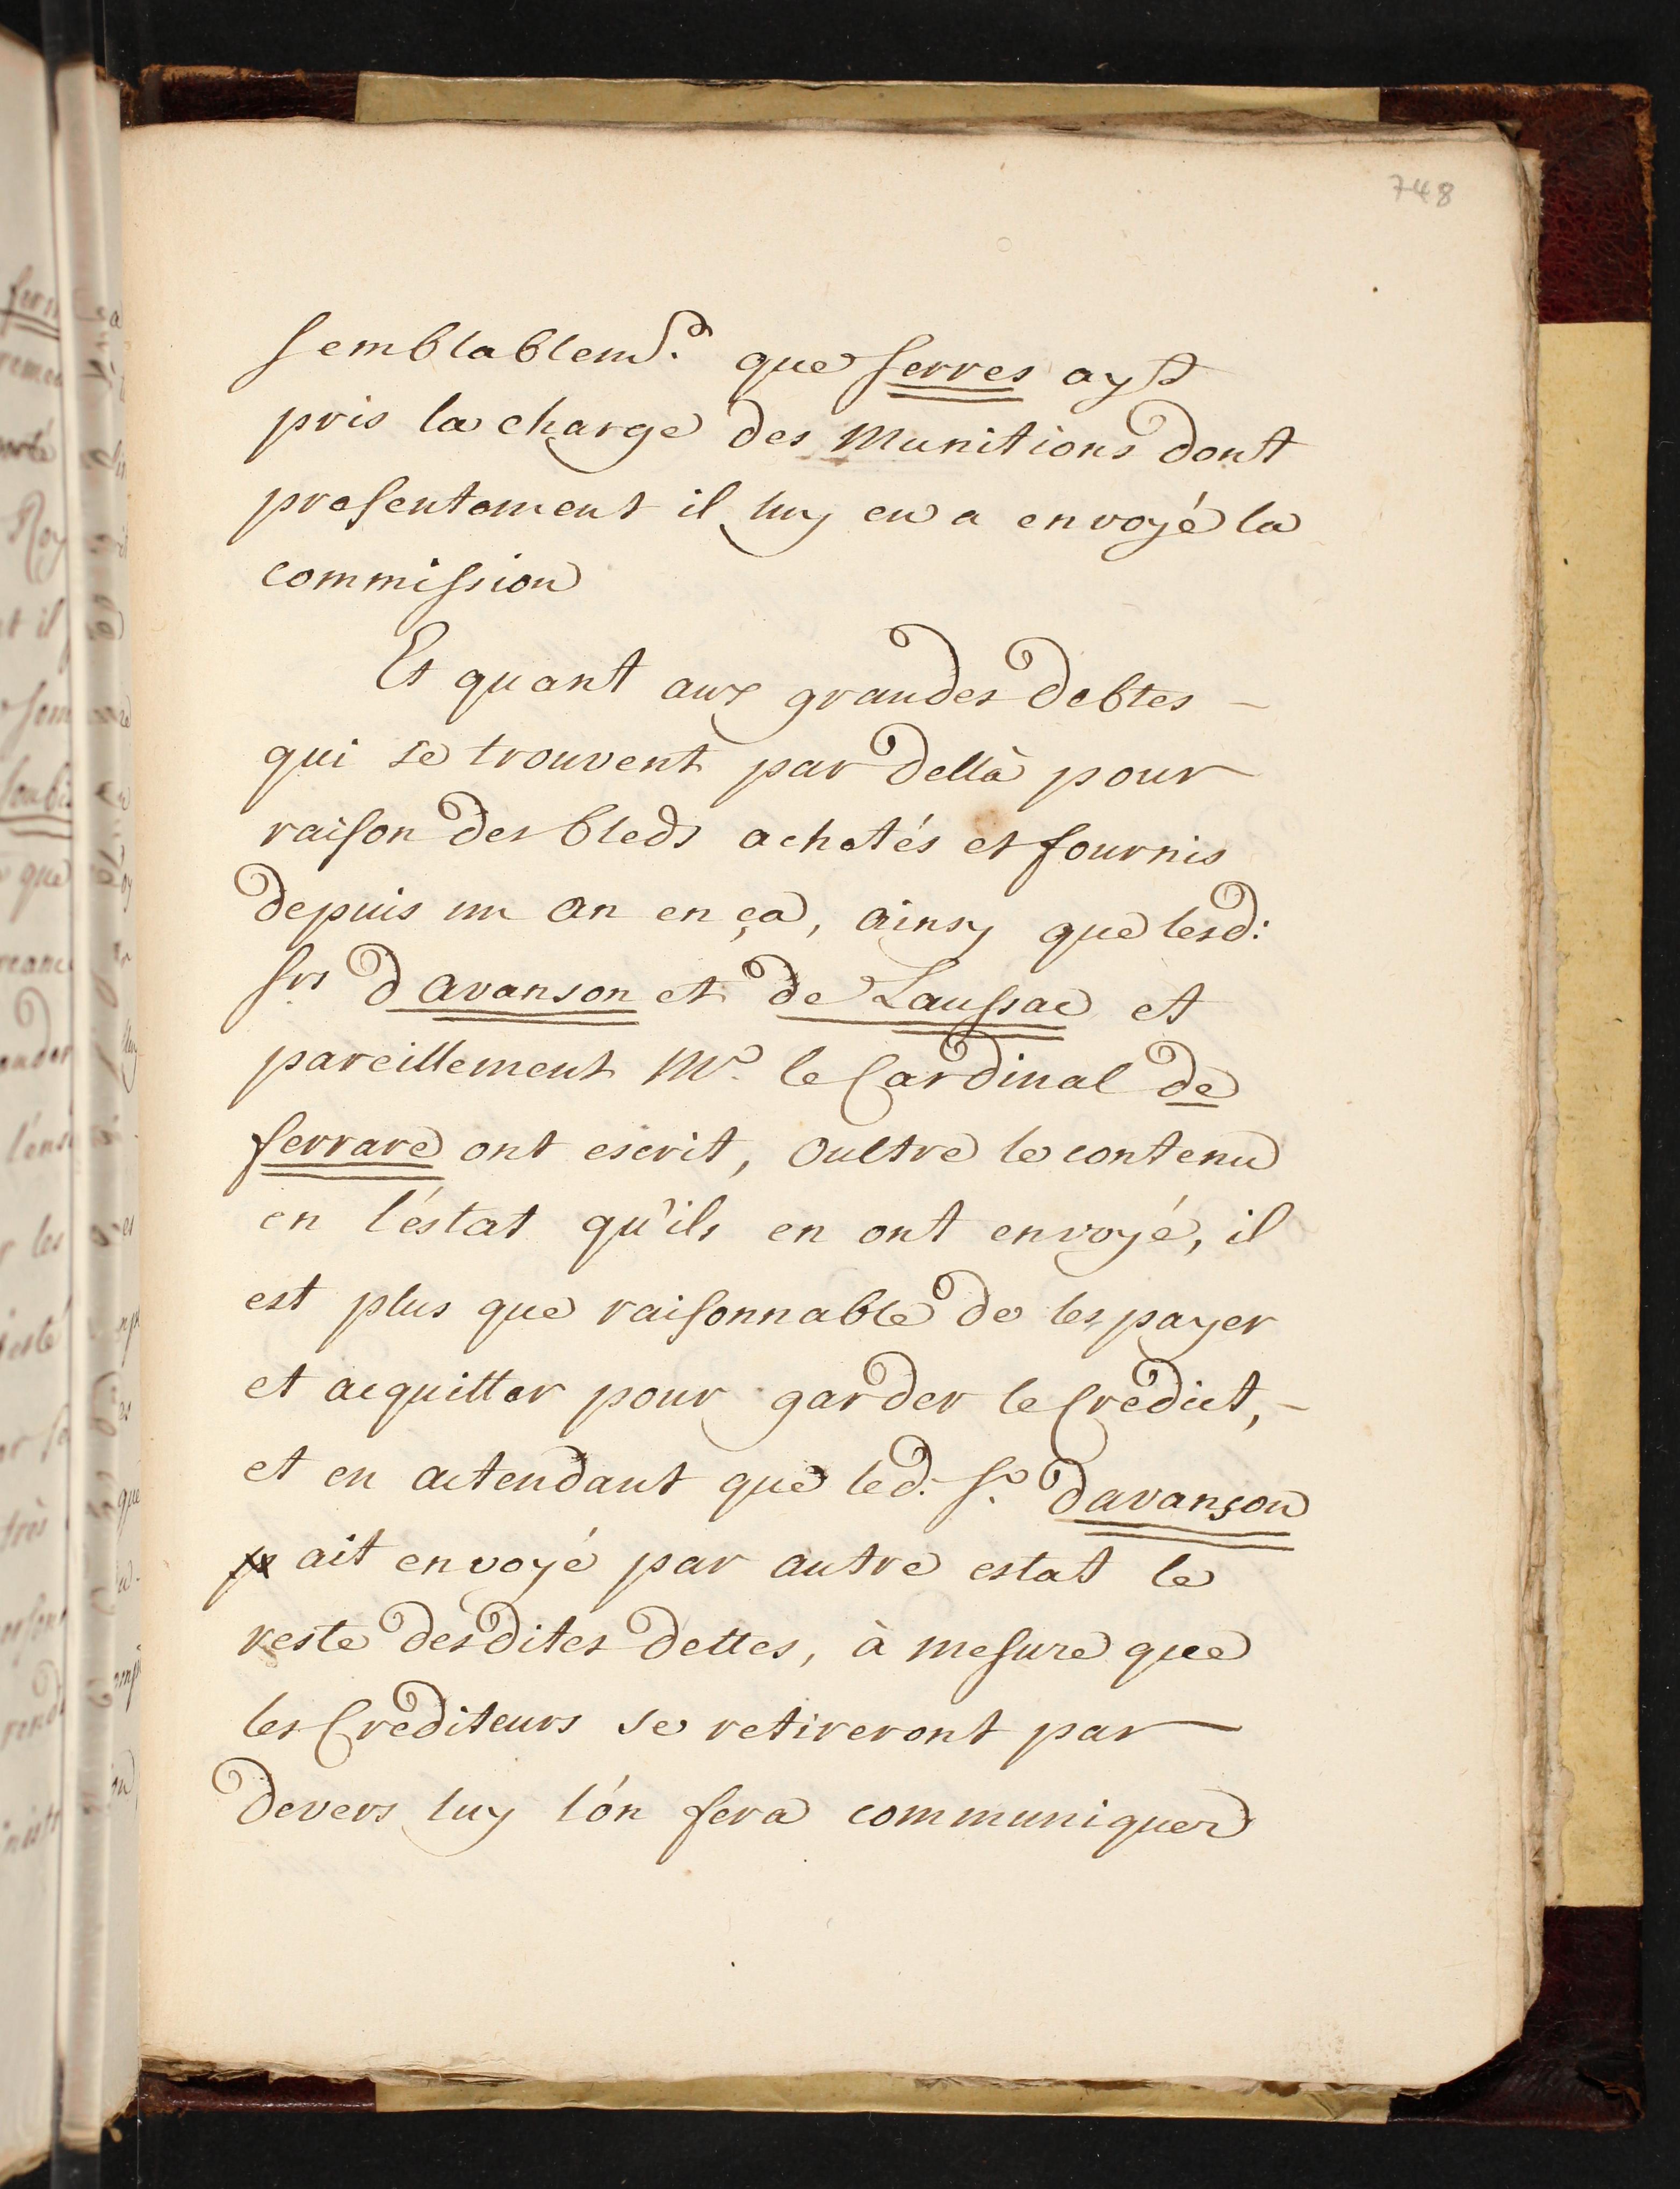 748
semblablem.t que serres ayt
pris la charge des munitions dont
presentement il luy en a envoyé la
commission
Et quant aux grandes debtes -
qui se trouvent par dellà pour
raison des bleds achetés et fournis
depuis un an en ça, ainsy que lesd:
srs davanson et de Laussac et
pareillement Mr. le Cardinal de
ferrare ont escrit, oultre le contenu
en l'éstat qu'ils en ont envoyé, il
est plus que raisonnable de les payer
et acquitter pour garder le Credict, -
et en attendant que led. Sr. davançon
ait envoyé par autre estat le
reste desdites dettes, à mesure que
les Crediteurs se retireront par
devers luy l'ón fera communiquer